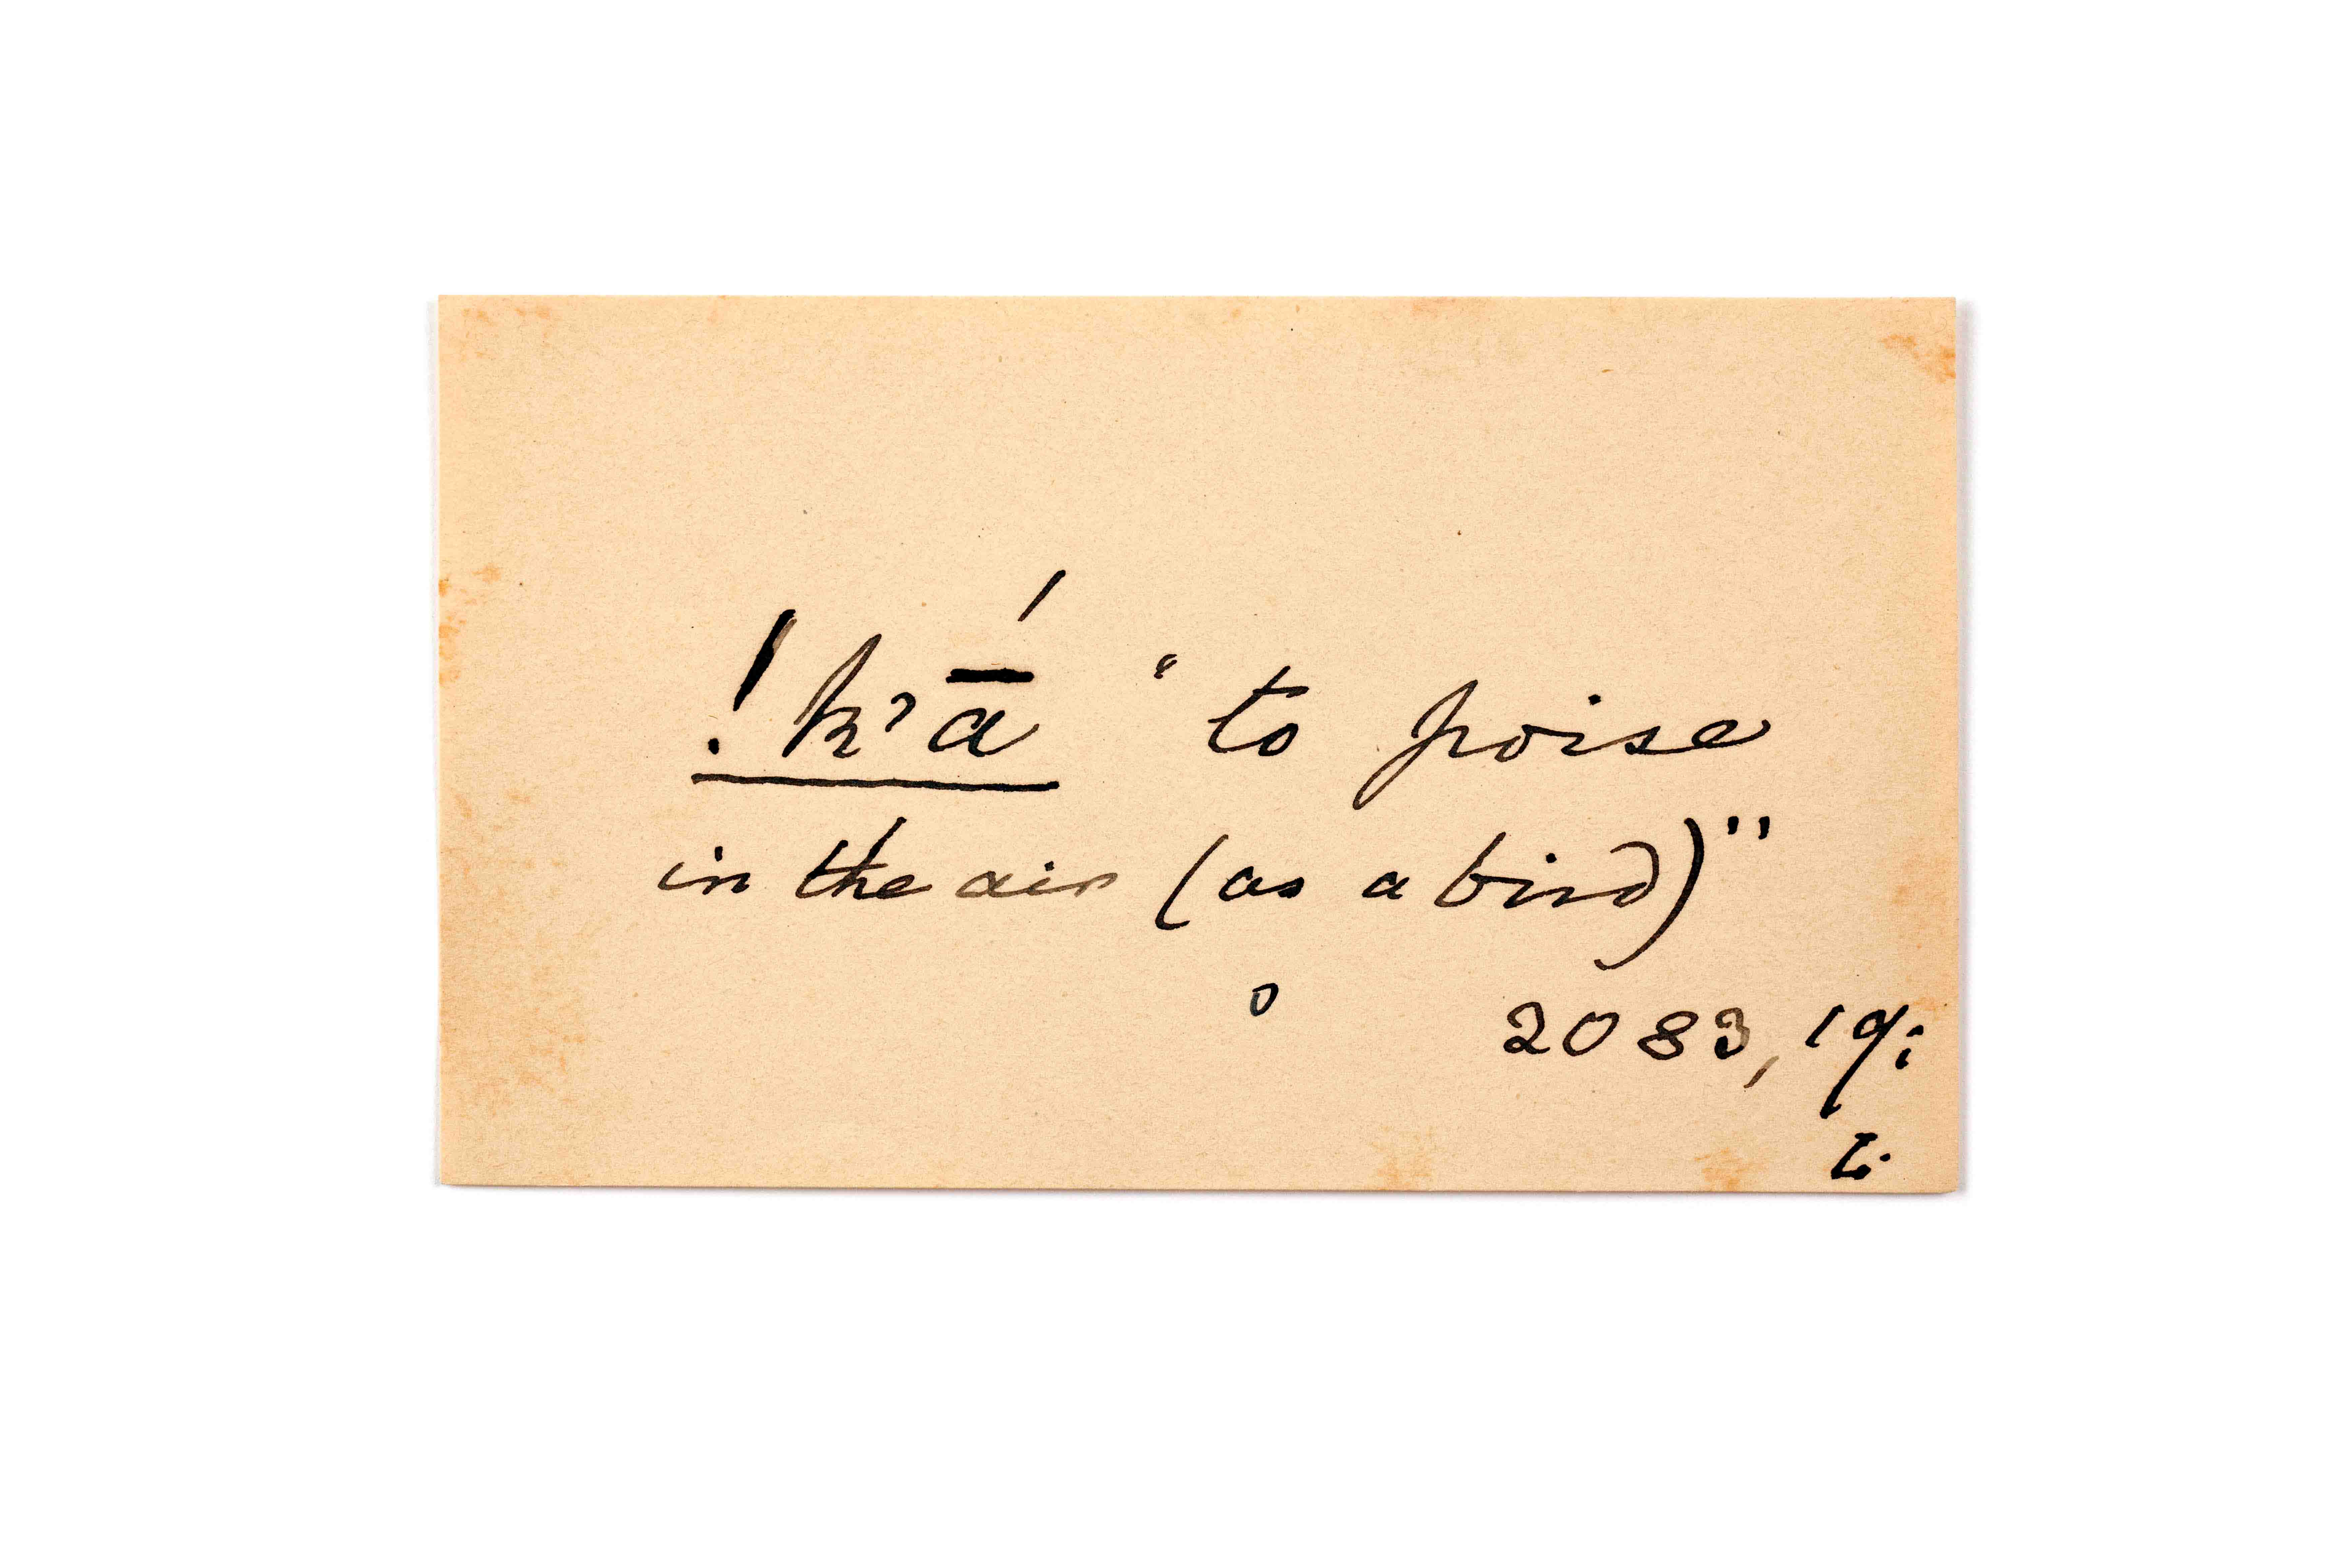 !kʔā́ “to poise
in the air (as a bird)”
2083, 19;
L.